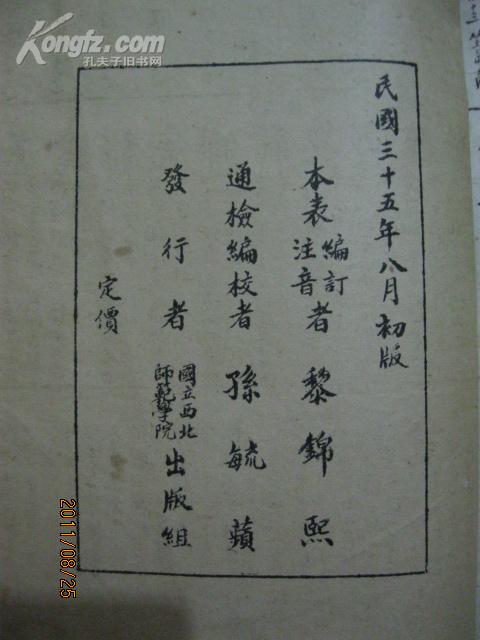 Kongfz.com
孔夫子旧书网
民國三十五年八月初版
本表編訂注音者 黎錦熙
通檢編校者 孫毓蘋
發行者 國立西北師範學院出版組
定價
2011/08/25